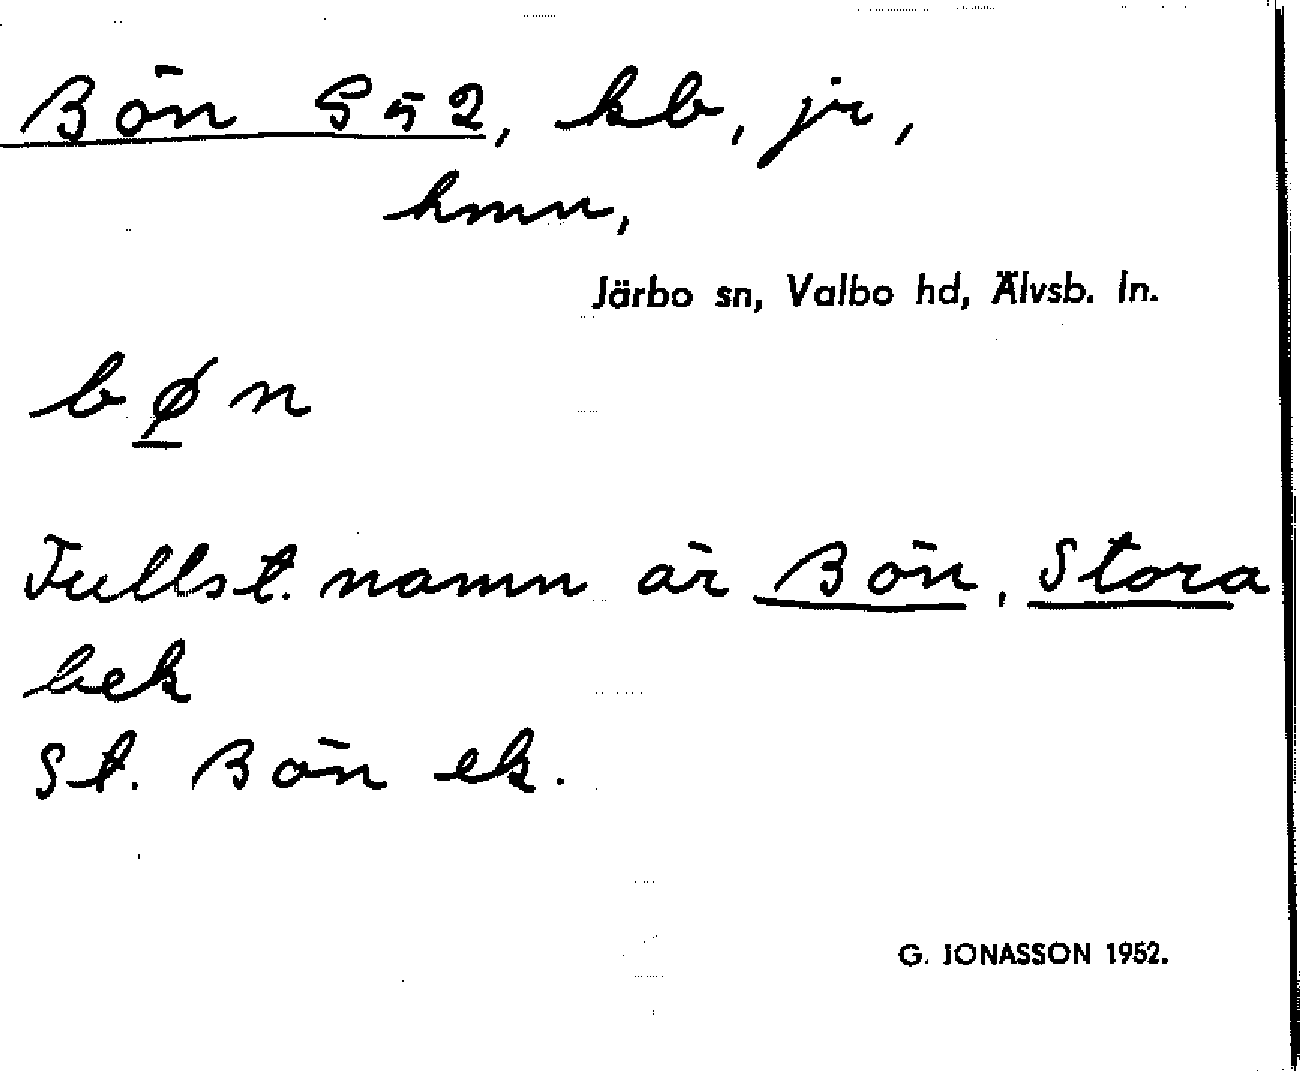 Bön S52, kb, jr,
hmn,
Järbo sn, Valbo hd, Älvsb. ln.
bøn
Fullst. namn är Bön, Stora
bek
St. Bön ek.
G. JONASSON 1952.